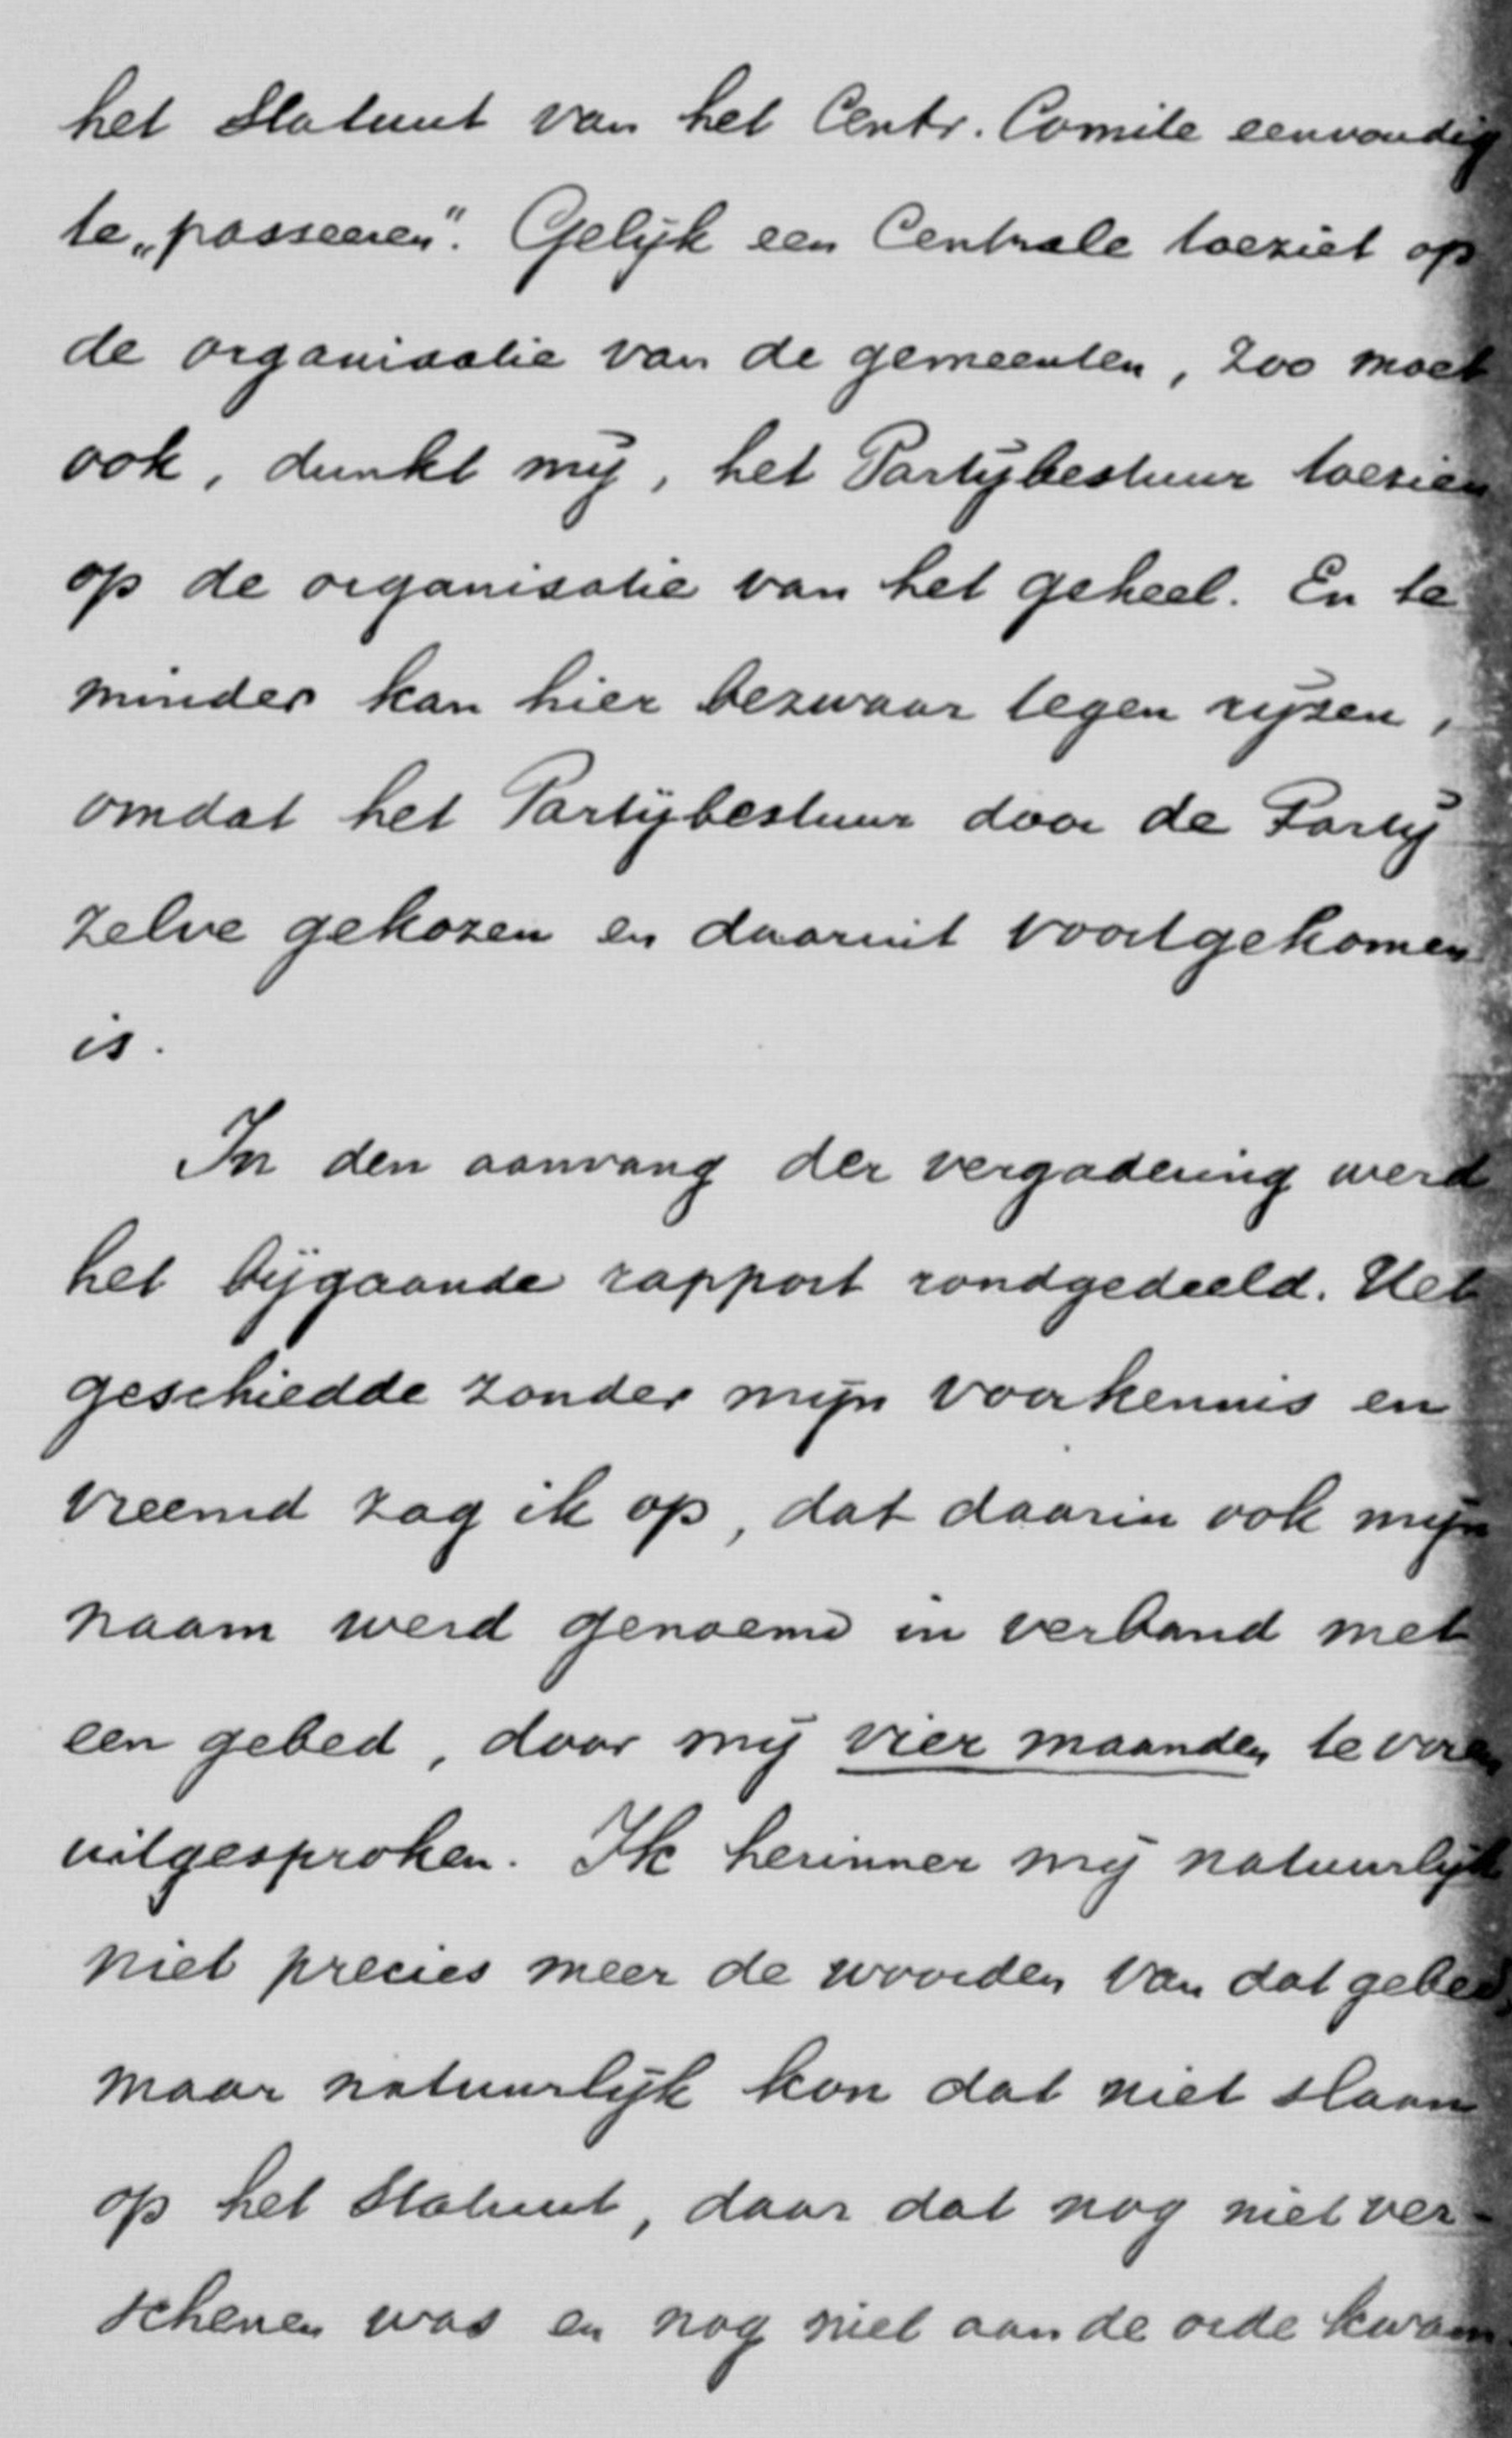 het Statuut van het Centr. Comite eenvoudig
te „passeeren”. Gelijk een Centrale toeziet op
de organisatie van de gemeenten, zoo moet
ook, dunkt mij, het Partijbestuur toezien
op de organisatie van het geheel. En te
minder kan hier bezwaar tegen rijzen,
omdat het Partijbestuur door de Partij
zelve gekozen en daaruit voortgekomen
is.
In den aanvang der vergadering werd
het bijgaande rapport rondgedeeld. Het
geschiedde zonder mijn voorkennis en
vreemd zag ik op, dat daarin ook mijn
naam werd genoemd in verband met
een gebed, door mij vier maanden te voren
uitgesproken. Ik herinner mij natuurlijk
niet precies meer de woorden van dat gebed,
maar natuurlijk kon dat niet slaan
op het Statuut, daar dat nog niet ver-
schenen was en nog niet aan de orde kwam.